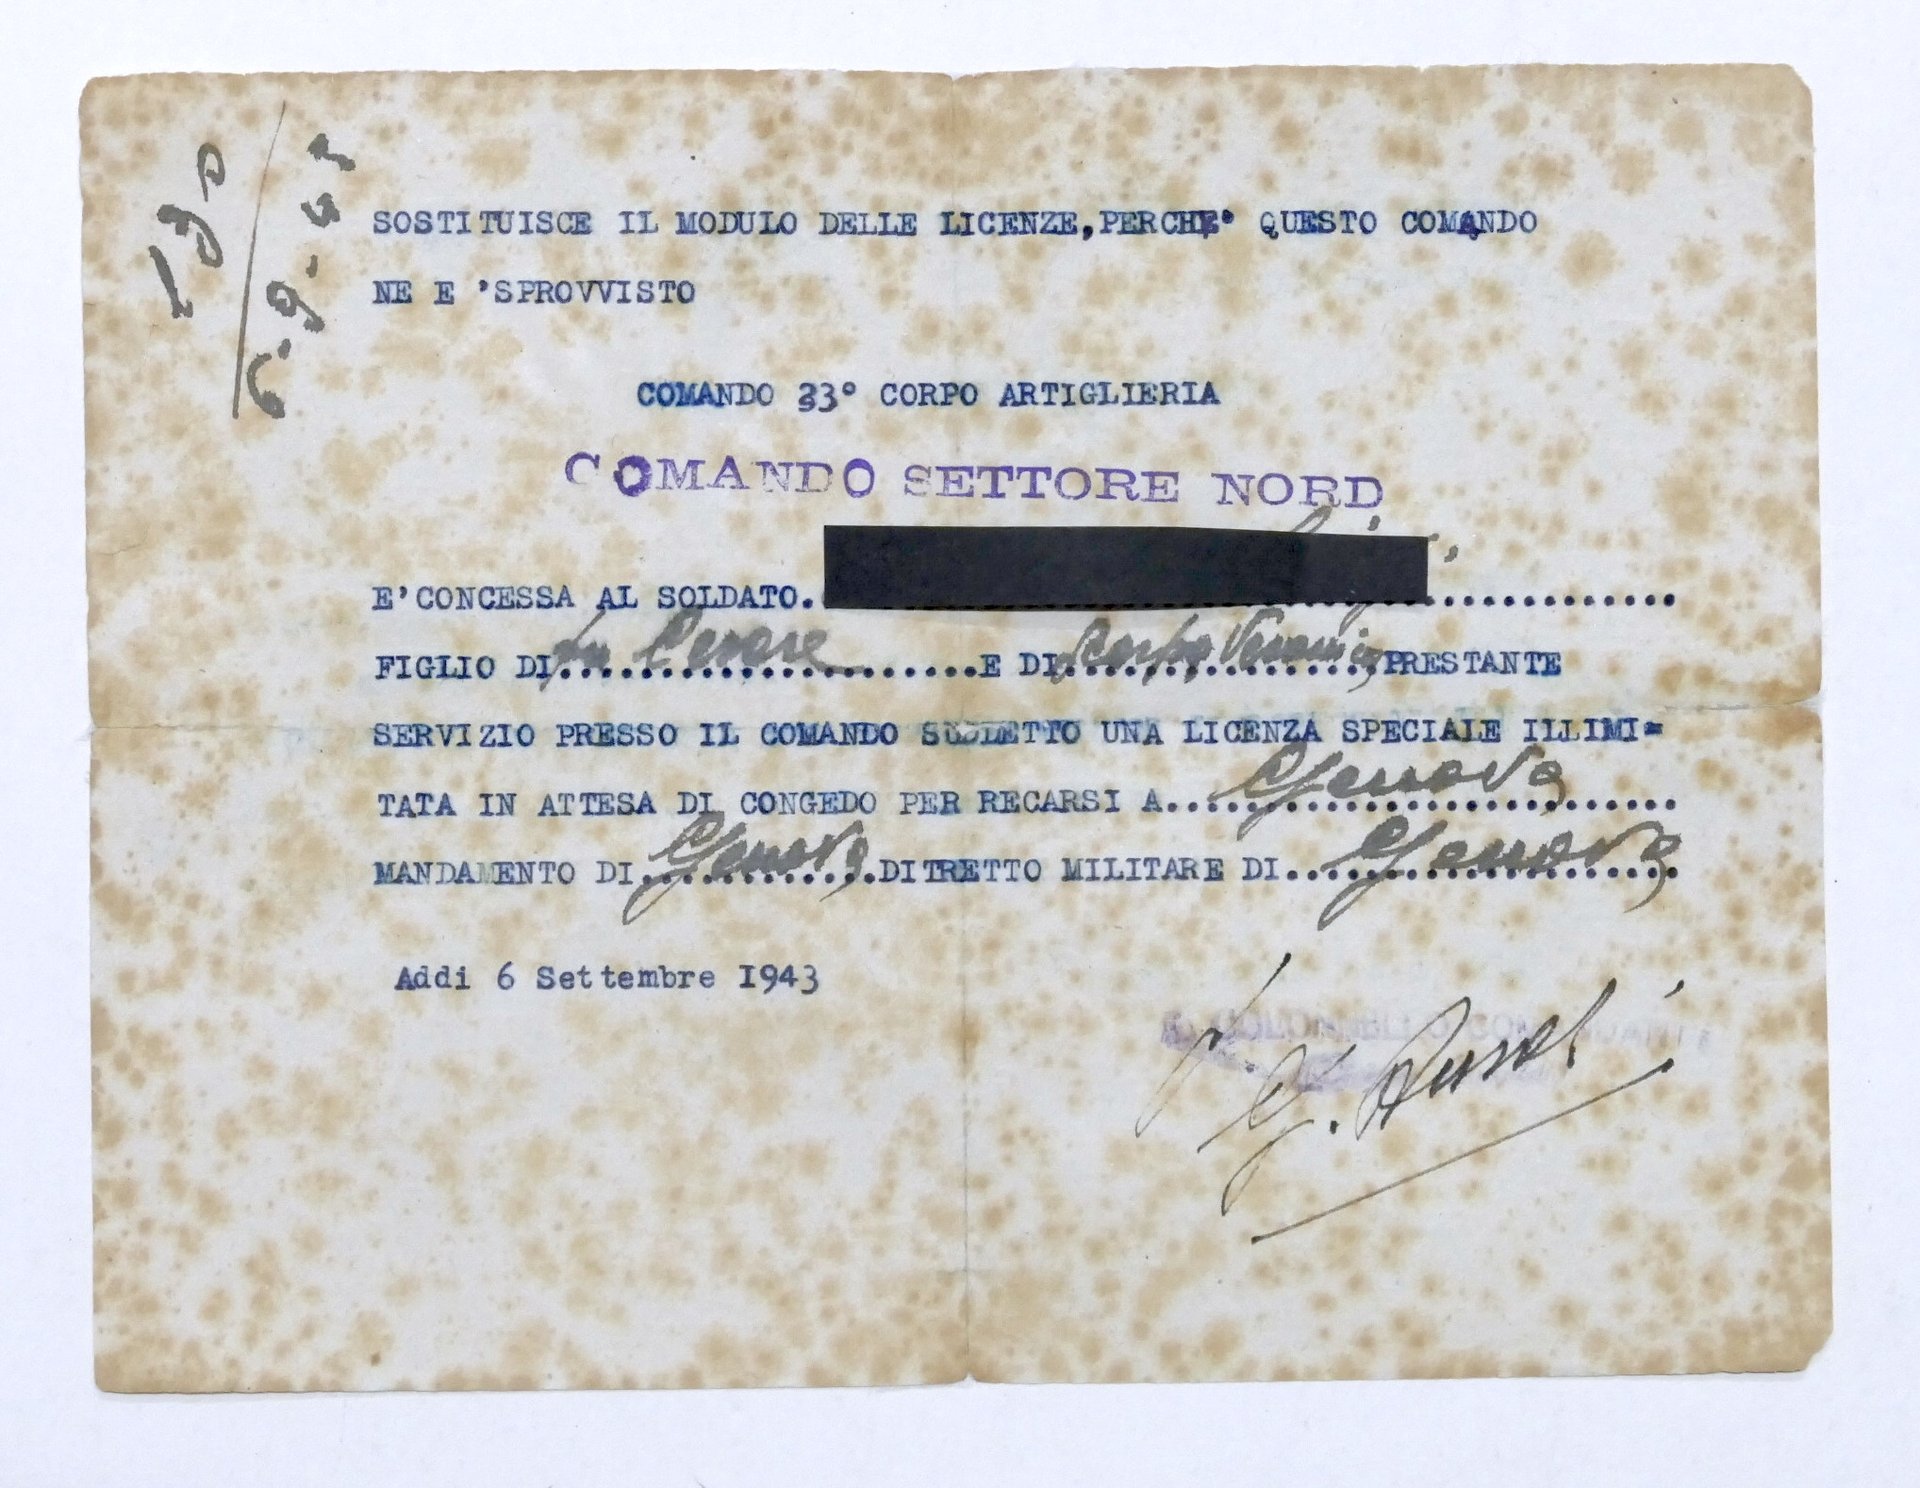 6.9.43
SOSTITUISCE IL MODULO DELLE LICENZE,PERCHE' QUESTO COMANDO
NE E 'SPROVVISTO
COMANDO 33° CORPO ARTIGLIERIA
COMANDO SETTORE NORD
E'CONCESSA AL SOLDATO.
FIGLIO DI fu Cesare E DI Veronica PRESTANTE
SERVIZIO PRESSO IL COMANDO SUDDETTO UNA LICENZA SPECIALE ILLIMI=
TATA IN ATTESA DI CONGEDO PER RECARSI A Genova
MANDAMENTO DI Genova DITRETTO MILITARE DI Genova
Addi 6 Settembre 1943